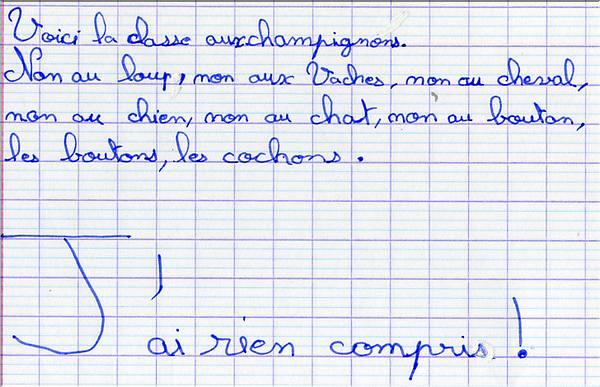 Voici la classe auxchampignons.
Non au loup, non aux Vaches, non au cheval,
non au chien, non au chat, non au boutan,
les boutons, les cochons.
J'ai rien compris !